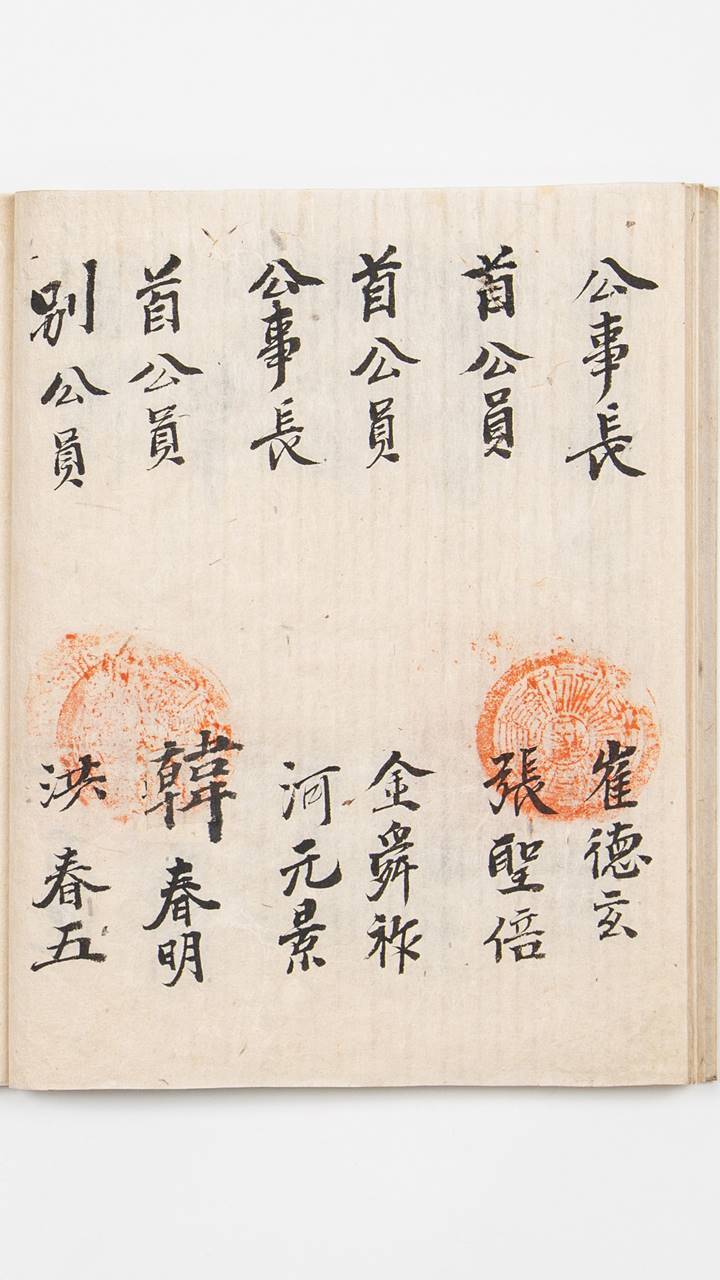 公事長 崔德玄
首公員 張聖倍
首公員 金舜祚
公事長 河元景
首公員 韓春明
別公員 洪春五